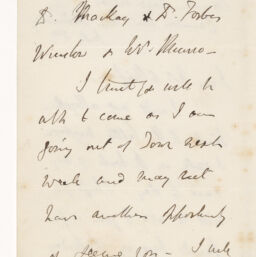 D. Mackay & D. Forbes
Winslow & Mr. Munro –
I trust you will be
able to come as I am
going out of Town next
week and may not
have another opportunity
of seeing you – I will